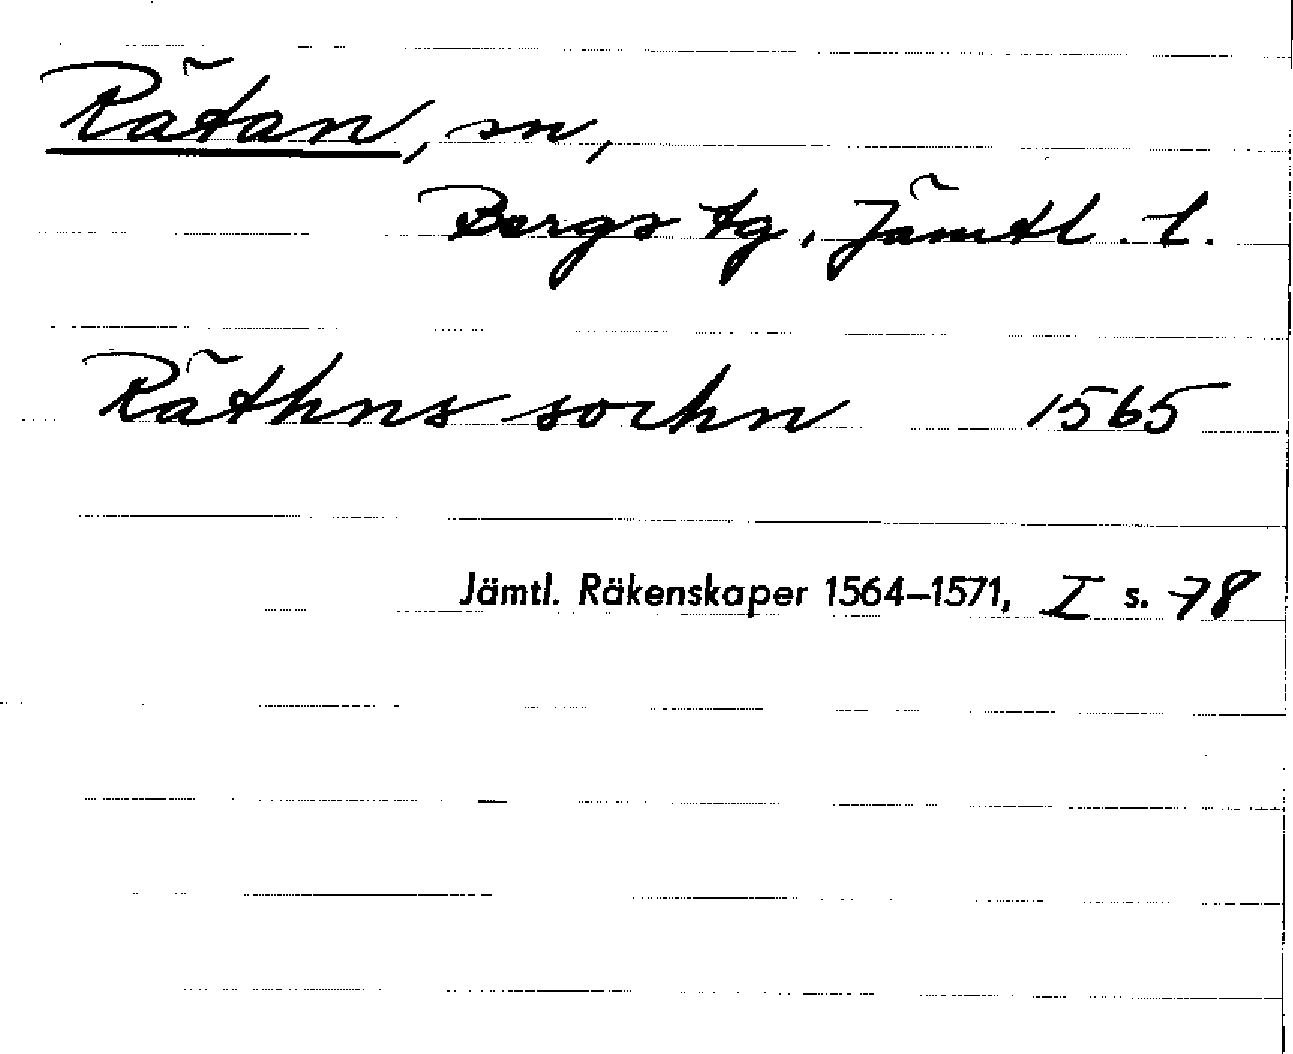 Rätan, sn,
Bergs tg, Jämtl. l.
Räthns sochn 1565
Jämtl. Räkenskaper 1564–1571, I s. 78